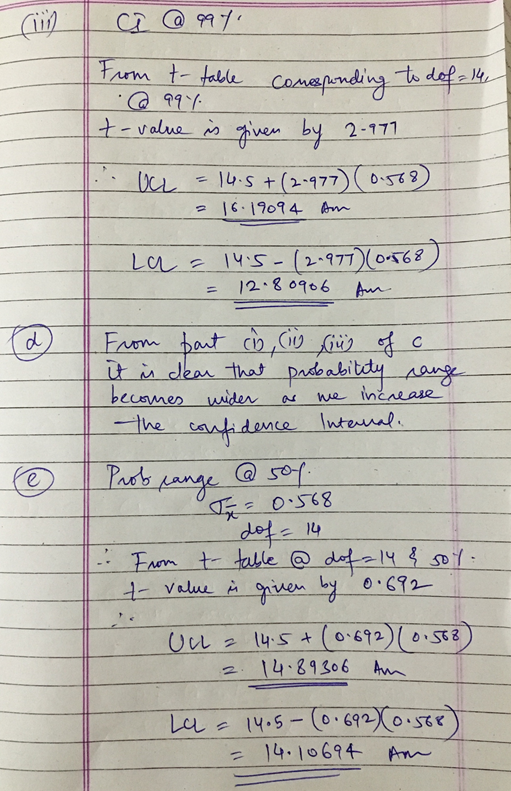 (iii) CI @ 99%.
From t- table corresponding to dof = 14,
@ 99%.
t-value is given by 2.977
∴ UCL = 14.5 + (2.977)(0.568)
= 16.19094 Ans
LCL = 14.5 - (2.977)(0.568)
= 12.80906 Ans
(d) From part (i), (ii), (iii) of c
it is clear that probability range
becomes wider as we increase
the confidence Interval.
(e) Prob range @ 50%.
σx̄ = 0.568
dof = 14
∴ From t- table @ dof = 14 & 50%.
t- value is given by 0.692
∴
UCL = 14.5 + (0.692)(0.568)
= 14.89306 Ans
LCL = 14.5 - (0.692)(0.568)
= 14.10694 Ans